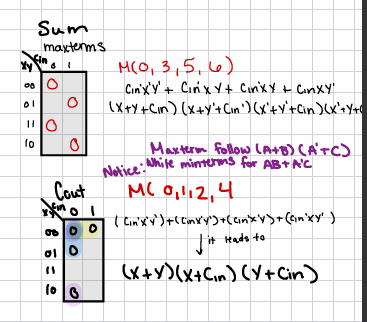 Sum
maxterms
xy Cin 0 1
00 0
01 0
11 0
10 0
M(0, 3, 5, 6)
Cin'x'y' + Cin'xy + Cin'xy + Cinxy'
(x+y+Cin)(x+y'+Cin')(x'+y'+Cin)(x'+y+C
Maxterm follow (A+B)(A'+C)
Notice: While minterms for AB+A'C
Cout
xy Cin 0 1
00 0 0
01 0
11
10 0
M( 0,1,2,4
(Cin'x'y')+(Cinx'y')+(Cin'x'y)+(Cin'xy')
it leads to
(x+y)(x+Cin)(y+Cin)